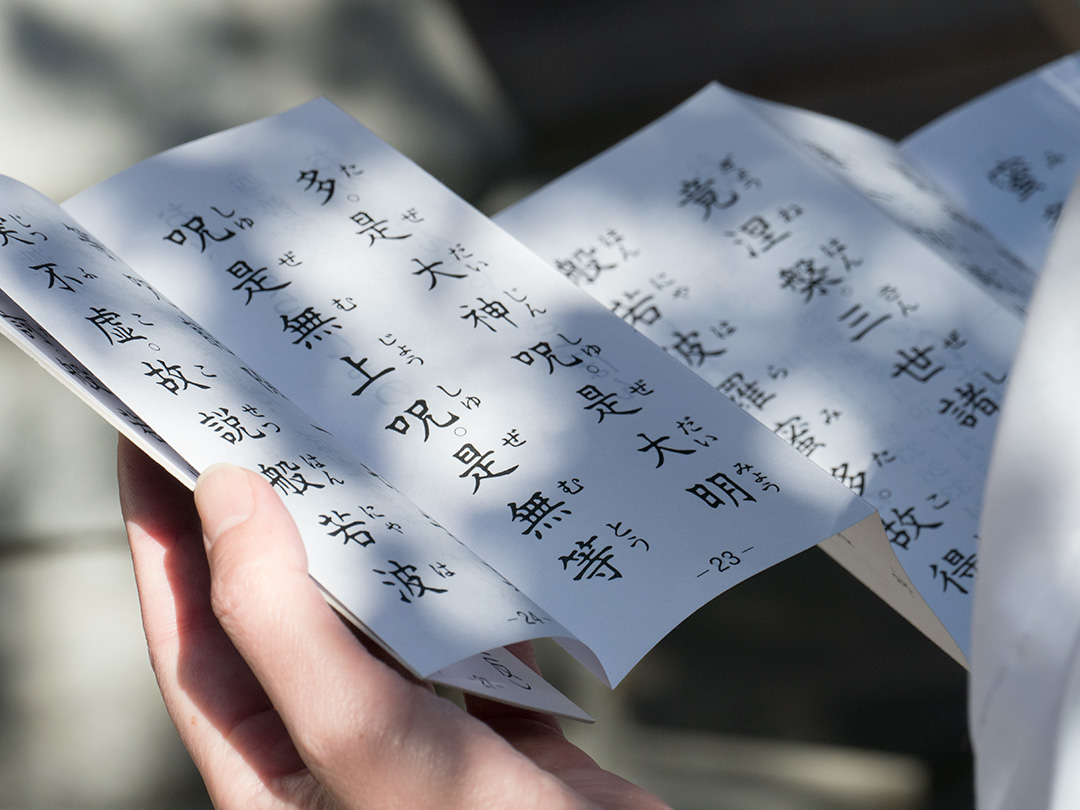 蜜
竟涅槃。三世諸
ぎょう ね はん さん ぜ
般若波羅蜜多故得
はん にゃ は ら み た こ
多。是大神呪是大明
た ぜ だい じん しゅ ぜ だい みょう
呪是無上呪。是無等
しゅ ぜ む じょう しゅ ぜ む とう
-23-
不虚。故説般若波
ふ こ こ せつ はん にゃ は
-24-